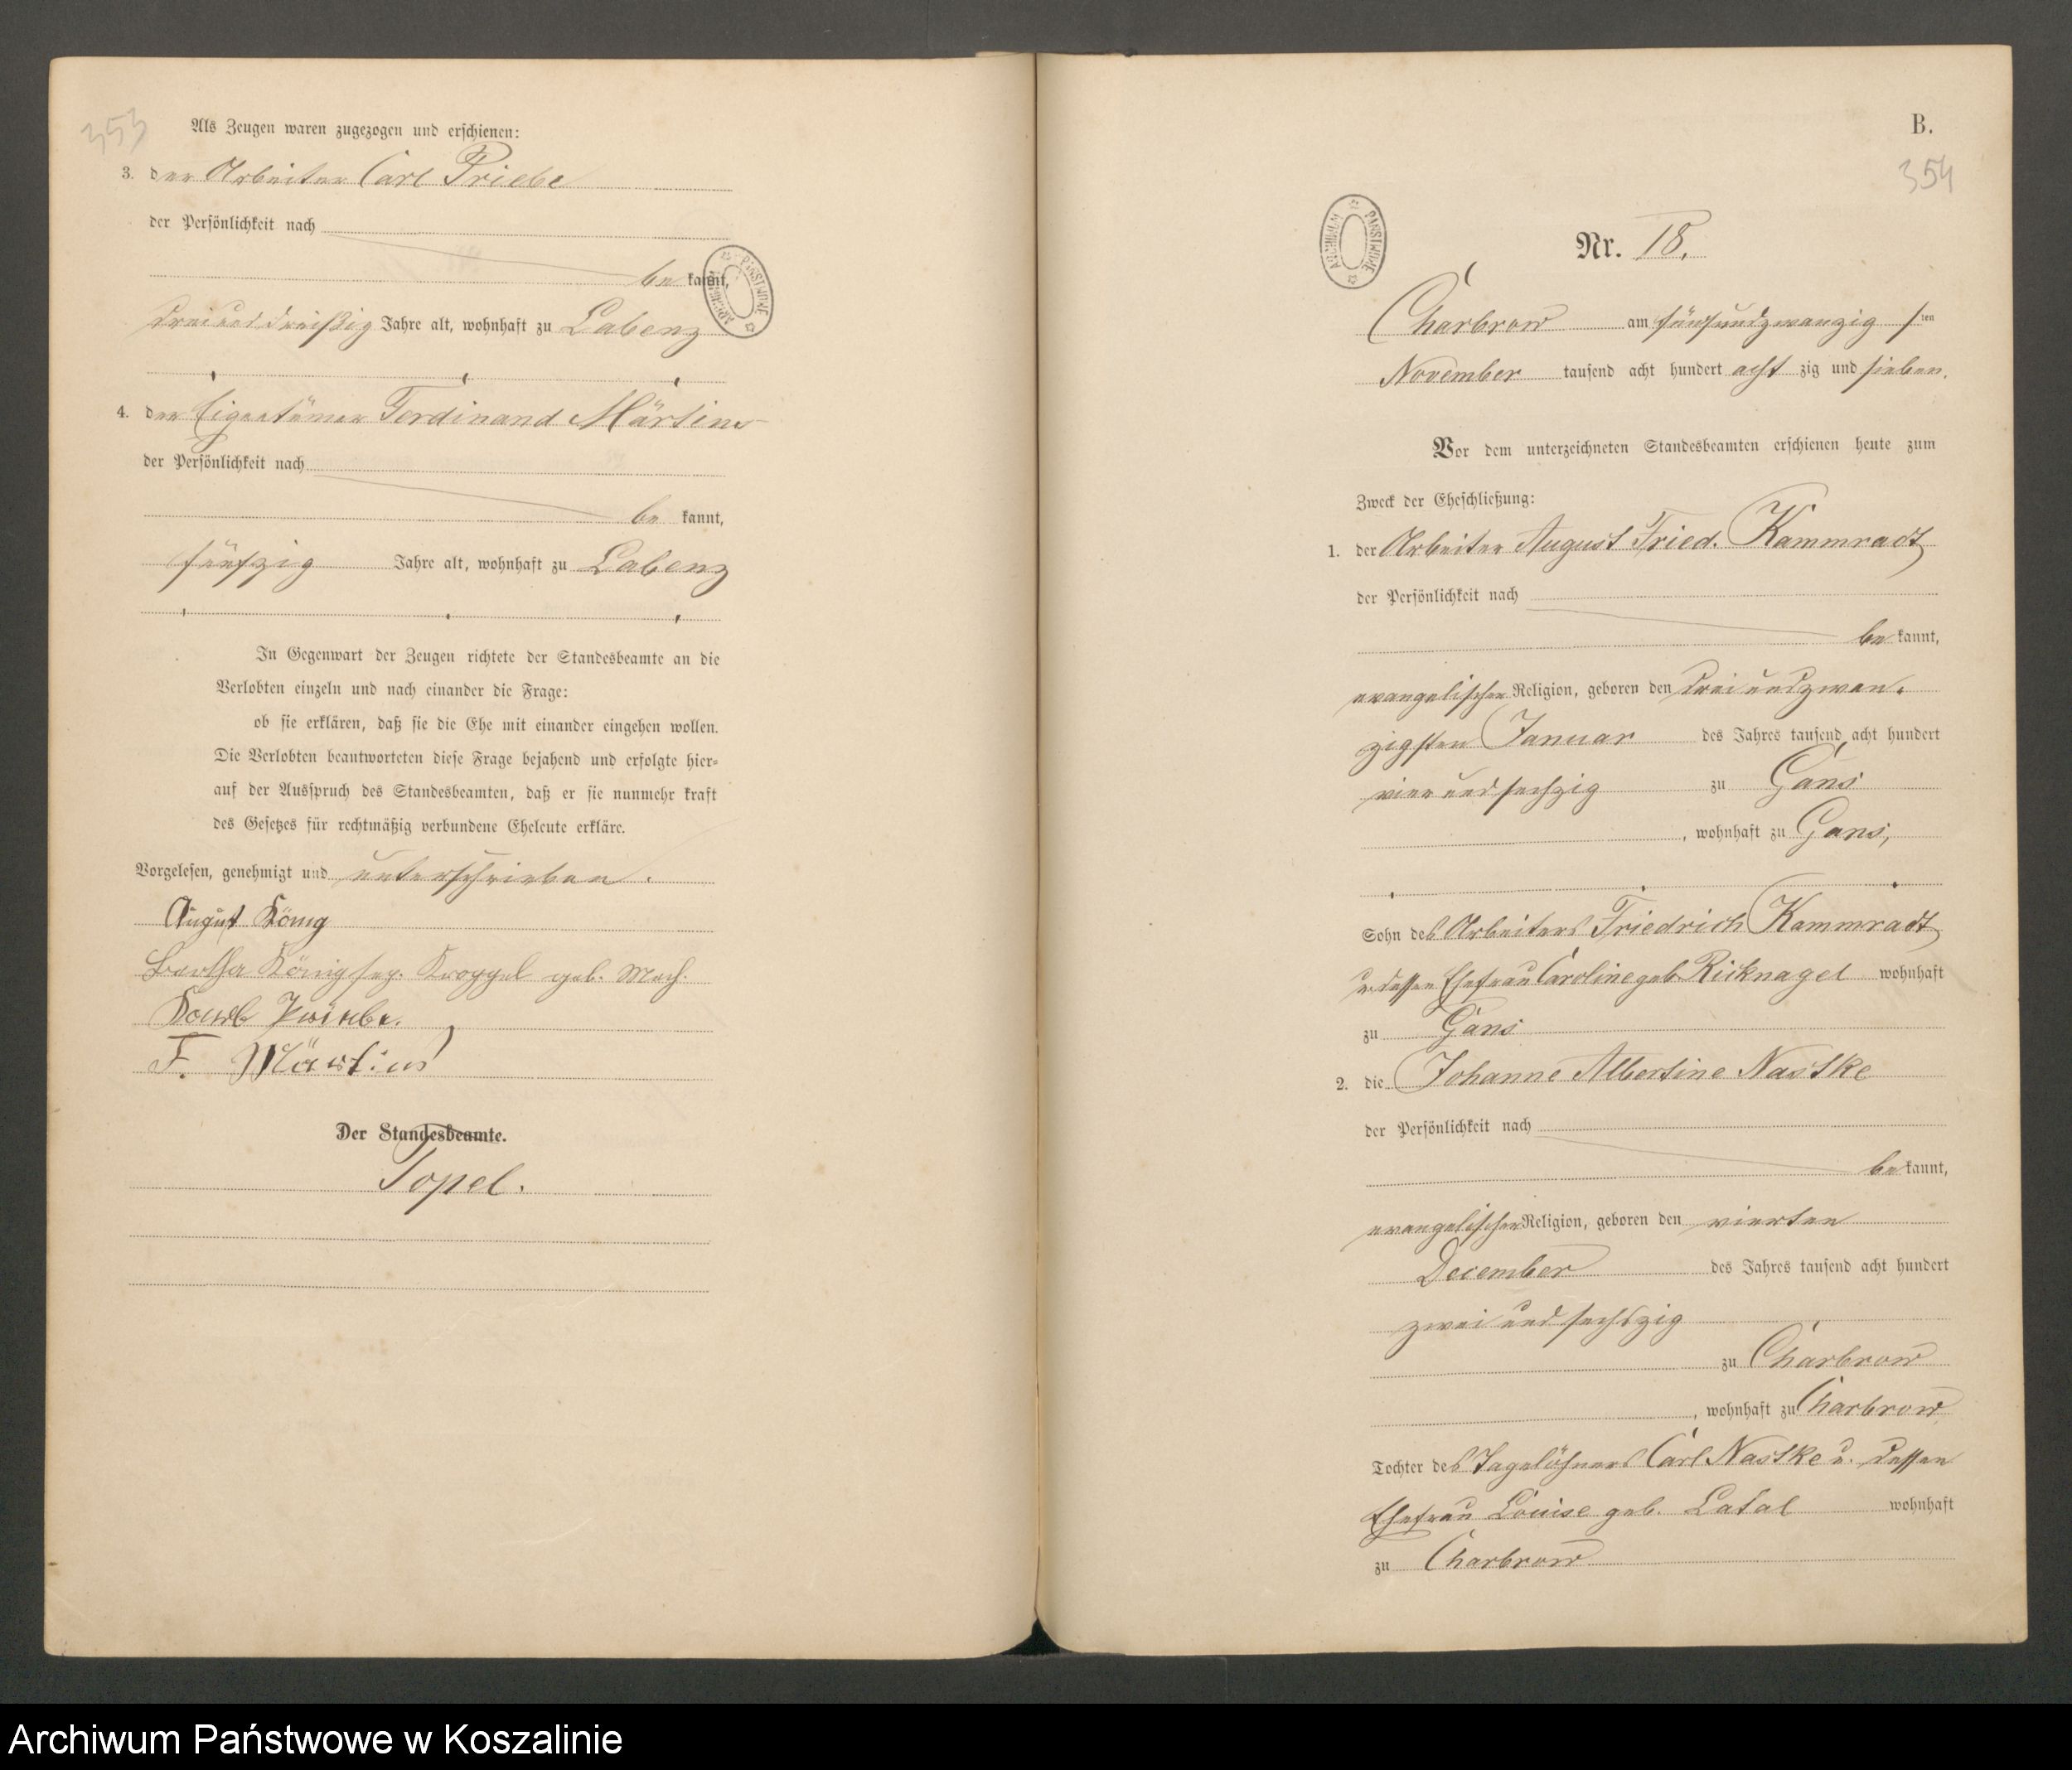 353
Als Zeugen waren zugezogen und erschienen:
3. der Arbeiter Carl Priebe
der Persönlichkeit nach
be kannt,
dreiunddreißig Jahre alt, wohnhaft zu Labenz
4. der Eigentümer Ferdinand Märtins
der Persönlichkeit nach
be kannt,
fünfzig Jahre alt, wohnhaft zu Labenz
In Gegenwart der Zeugen richtete der Standesbeamte an die
Verlobten einzeln und nach einander die Frage:
ob sie erklären, daß sie die Ehe mit einander eingehen wollen.
Die Verlobten beantworteten diese Frage bejahend und erfolgte hier-
auf der Ausspruch des Standesbeamten, daß er sie nunmehr kraft
des Gesetzes für rechtmäßig verbundene Eheleute erkläre.
Vorgelesen, genehmigt und unterschrieben.
August König
Bertha König geb. Mach.
Priebe.
F. Märtins
Der Standesbeamte.
Topel.
ARCHIWUM PAŃSTWOWE
B.
354
ARCHIWUM PAŃSTWOWE
Nr. 18.
Charbrow am fünfundzwanzig sten
November tausend acht hundert acht zig und sieben.
Vor dem unterzeichneten Standesbeamten erschienen heute zum
Zweck der Eheschließung:
1. der Arbeiter August Fried. Kammradt
der Persönlichkeit nach
be kannt,
evangelischer Religion, geboren den dreiundzwan-
zigsten Januar des Jahres tausend acht hundert
vier und sechzig zu Gans
, wohnhaft zu Gans,
Sohn des Arbeiters Friedrich Kammradt
u. dessen Ehefrau Caroline geb. Ricknagel wohnhaft
zu Gans
2. die Johanne Albertine Nastke
der Persönlichkeit nach
be kannt,
evangelischer Religion, geboren den vierten
December des Jahres tausend acht hundert
zwei und sechszig
zu Charbrow
, wohnhaft zu Charbrow
Tochter des Tagelöhners Carl Nastke u. dessen
Ehefrau Louise geb. Latal wohnhaft
zu Charbrow
Archiwum Państwowe w Koszalinie